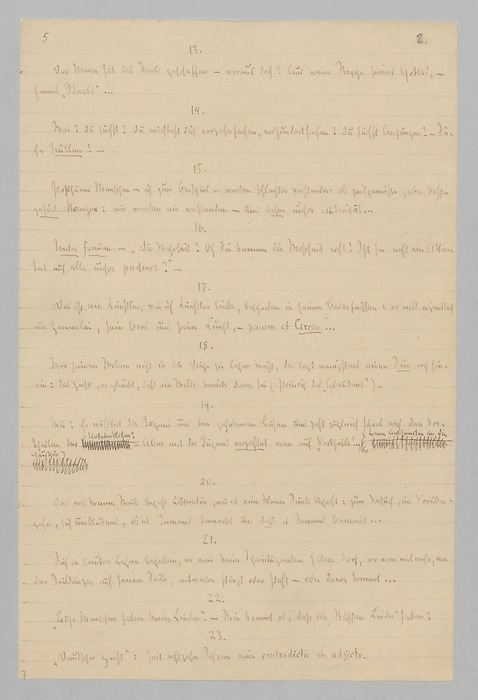 5 2.
13.
Der Mann hat das Weib geschaffen — woraus doch? Aus einer Rippe seines Gottes, —
seines „Ideals“ ...
14.
Was? du suchst? du möchtest dich verzehnfachen, verhundertfachen? du suchst Anhänger? — Su-
che Nullen! —
15.
Posthume Menschen — ich zum Beispiel — werden schlechter verstanden als zeitgemäße, aber besser
gehört. Strenger: wir werden nie verstanden — und daher unsre Autorität ...
16.
Unter Frauen. — „Die Wahrheit? Oh Sie kennen die Wahrheit nicht! Ist sie nicht ein Atten-
tat auf alle unsre pudeurs?“ —
17.
Das ist ein Künstler, wie ich Künstler liebe, bescheiden in seinen Bedürfnissen: er will eigentlich
nur Zweierlei, sein Brod und seine Kunst, — panem et Circen ...
18.
Wer seinen Willen nicht in die Dinge zu legen weiß, der legt wenigstens einen Sinn noch hin-
ein: das heißt, er glaubt, daß ein Wille bereits darin sei (Princip des „Glaubens“).
19.
Wie? Ihr wähltet die Tugend und den gehobenen Busen und seht zugleich scheel nach den Vor-
theilen der Unbedenklichen? — Aber mit der Tugend verzichtet man auf „Vortheile“ ... (einem Antisemiten an die
Hausthür.)
20.
Das vollkommne Weib begeht Litteratur, wie es eine kleine Sünde begeht: zum Versuch, im Vorüber-
gehn, sich umblickend, ob es Jemand bemerkt und daß es Jemand bemerkt ...
21.
Sich in lauter Lagen begeben, wo man keine Scheintugenden haben darf, wo man vielmehr, wie
der Seiltänzer auf seinem Seile, entweder stürzt oder steht — oder davon kommt ...
22.
„Böse Menschen haben keine Lieder.“ — Wie kommt es, daß die Russen Lieder haben?
23.
„Deutscher Geist“: seit achtzehn Jahren eine contradictio in adjecto.